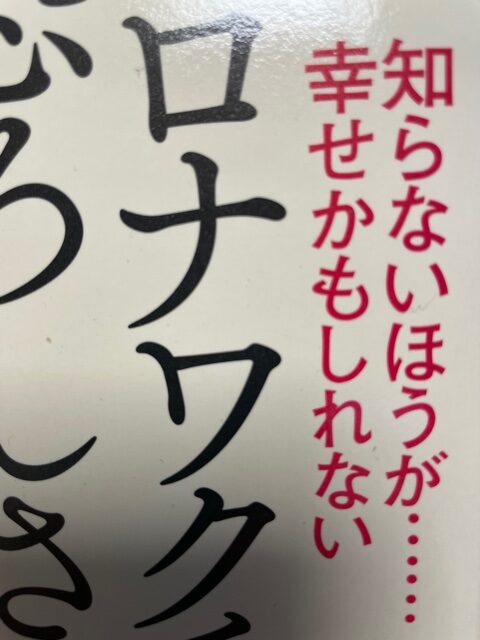 知らないほうが……
幸せかもしれない
ロナワク
ろしさ